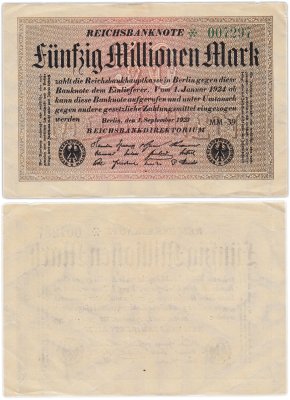 REICHSBANKNOTE * 007297
Fünfzig Millionen Mark
zahlt die Reichsbankhauptkasse in Berlin gegen diese
Banknote dem Einlieferer. Vom 1. Januar 1924 ab
kann diese Banknote aufgerufen und unter Umtausch
gegen andere gesetzliche Zahlungsmittel eingezogen
werden MM-39
Berlin, den 1. September 1923
REICHSBANKDIREKTORIUM